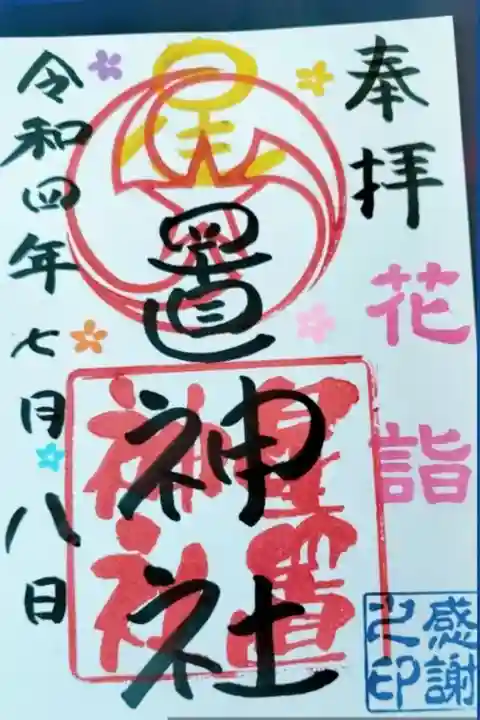 奉拝
花詣
感謝
之印
星置神社
星置
神社
令和四年七月八日